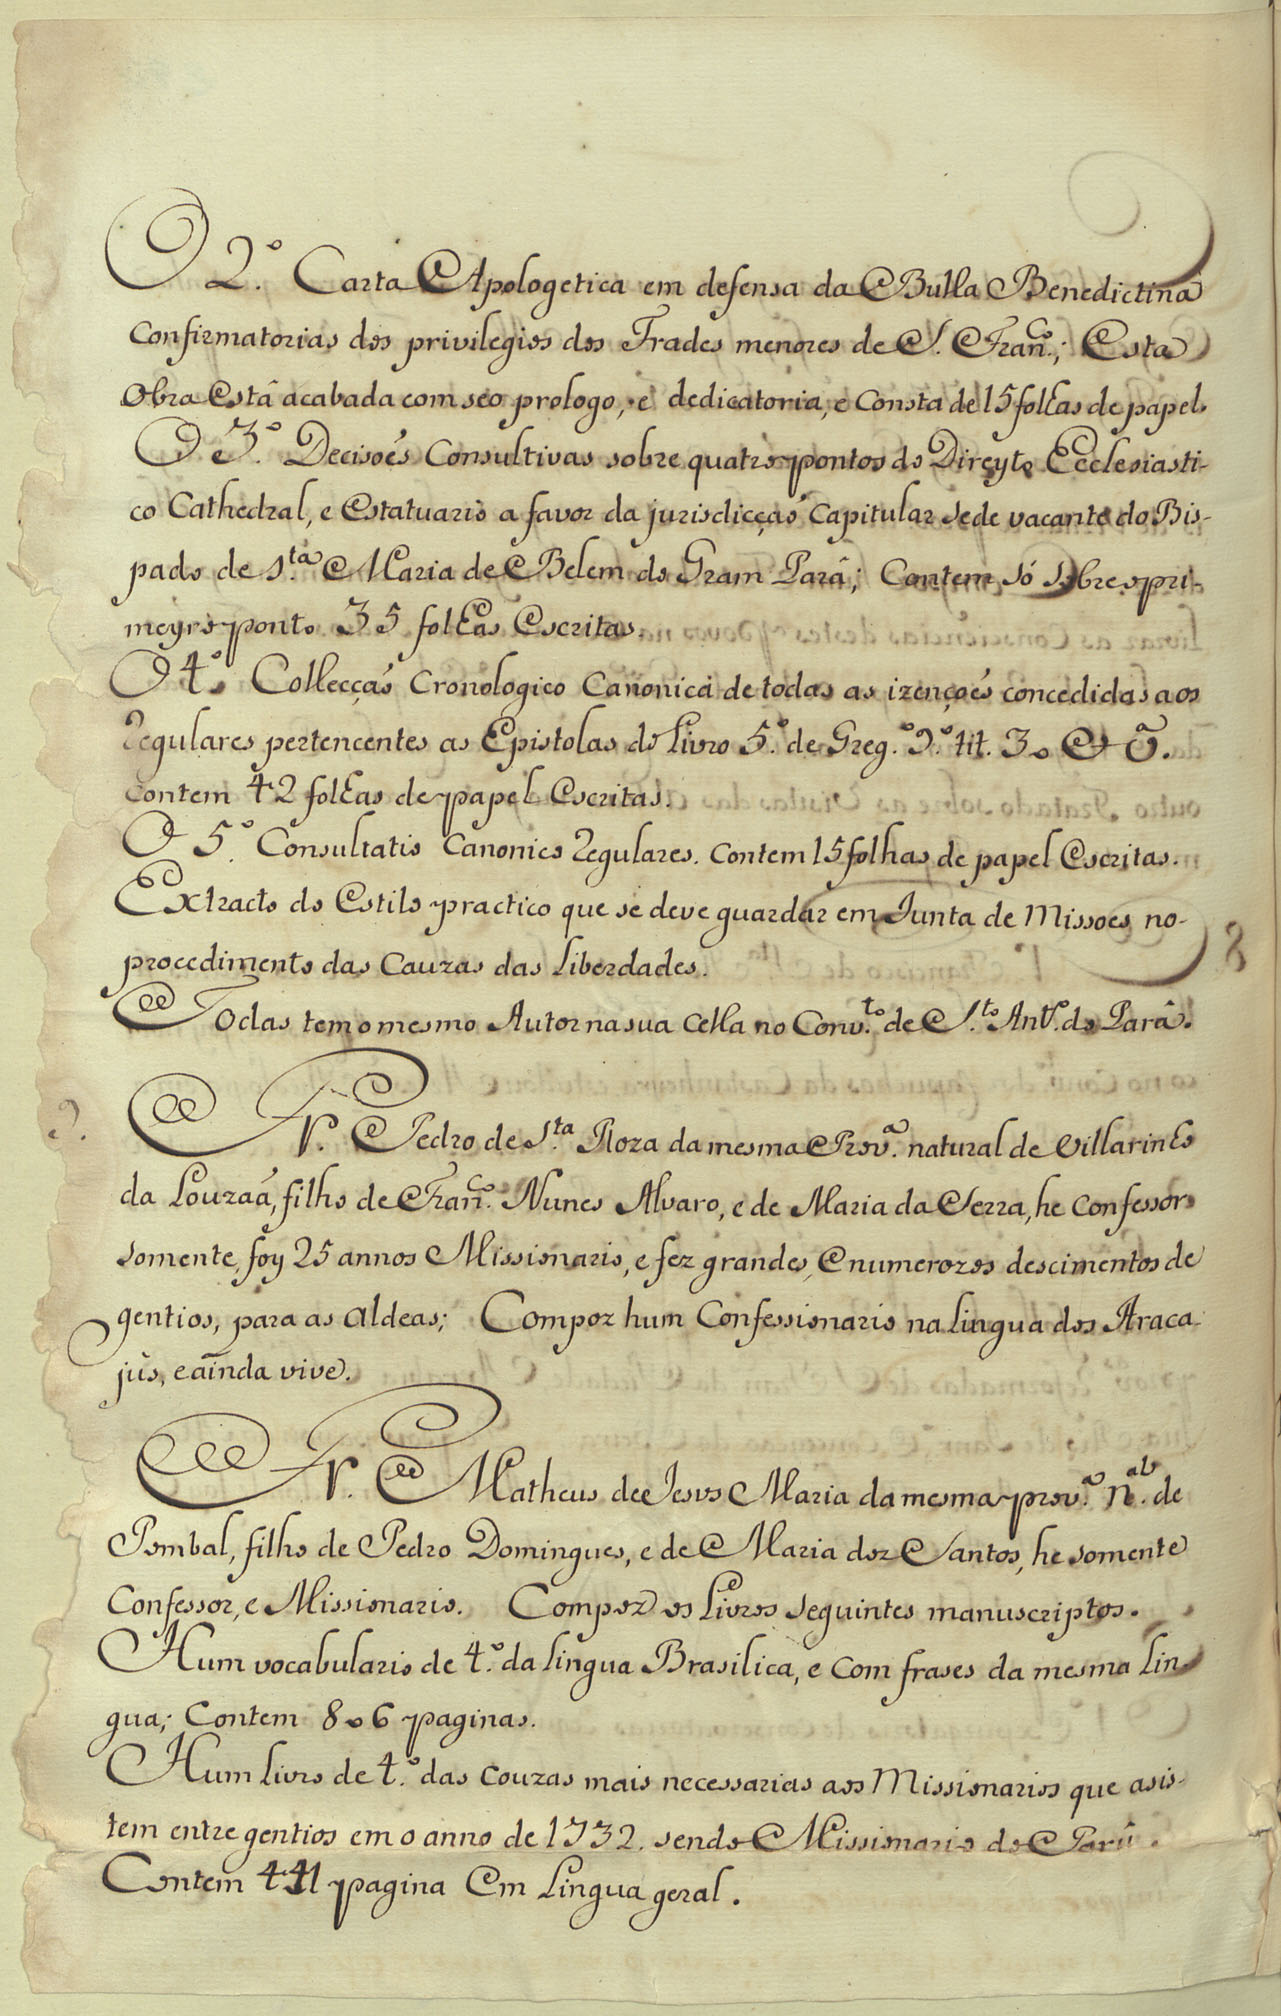 O 2.º Carta Apologetica em defensa da Bulla Benedictina
Confirmatorias dos privilegios dos Frades menores de S. Fran.co; Esta
Obra Está acabada com seo prologo, e dedicatoria, e Consta de 15 folhas de papel.
O 3.º Decisoẽs Consultivas sobre quatro pontos do Direyto Ecclesiasti-
co Cathedral, e Estatuario a favor da jurisdicçaõ Capitular sede vacante do Bis-
pado de S.ta Maria de Belem do Gram Parâ; Contem só sobre o pri-
meyro ponto 35 folhas Escritas.
O 4.º Collecçaõ Cronologico Canonica de todas as izençoẽs concedidas aos
Regulares pertencentes as Epistolas do Livro 5.º de Greg.º 9.º tit. 3. &ª.
Contem 42 folhas de papel Escritas.
O 5.º Consultatio Canonico Regulares. Contem 15 folhas de papel Escritas.
Extracto do Estilo practico que se deve guardar em Junta de Missoẽs no
procedimento das Cauzas das Liberdades.
Todas tem o mesmo Autor na sua Cella no Conv.to de S.to Ant.º do Parâ.
9. Fr. Pedro de S.ta Roza da mesma Prov.a natural de Villarinho
da Louzaã, filho de Fran.co Nunes Alvaro, e de Maria da Serra, he Confessor
somente, foy 25 annos Missionario, e fez grandes, e numerozos descimentos de
gentios, para as Aldeas; Compoz hum Confessionario na Lingua dos Araca
jùs, e aînda vive.
Fr. Matheus de Jesus Maria da mesma prov.a n.al de
Pombal, filho de Pedro Domingues, e de Maria doz Santos, he somente
Confessor, e Missionario. Compoz os Livros seguintes manuscriptos.
Hum vocabulario de 4.º da lingua Brasilica, e com frases da mesma Lin-
gua; Contem 806 paginas.
Hum Livro de 4.º das Couzas mais necessarias aos Missionarios que asis-
tem entre gentios em o anno de 1732. sendo Missionario do Parù.
Contem 441 pagina Em Lingua geral.